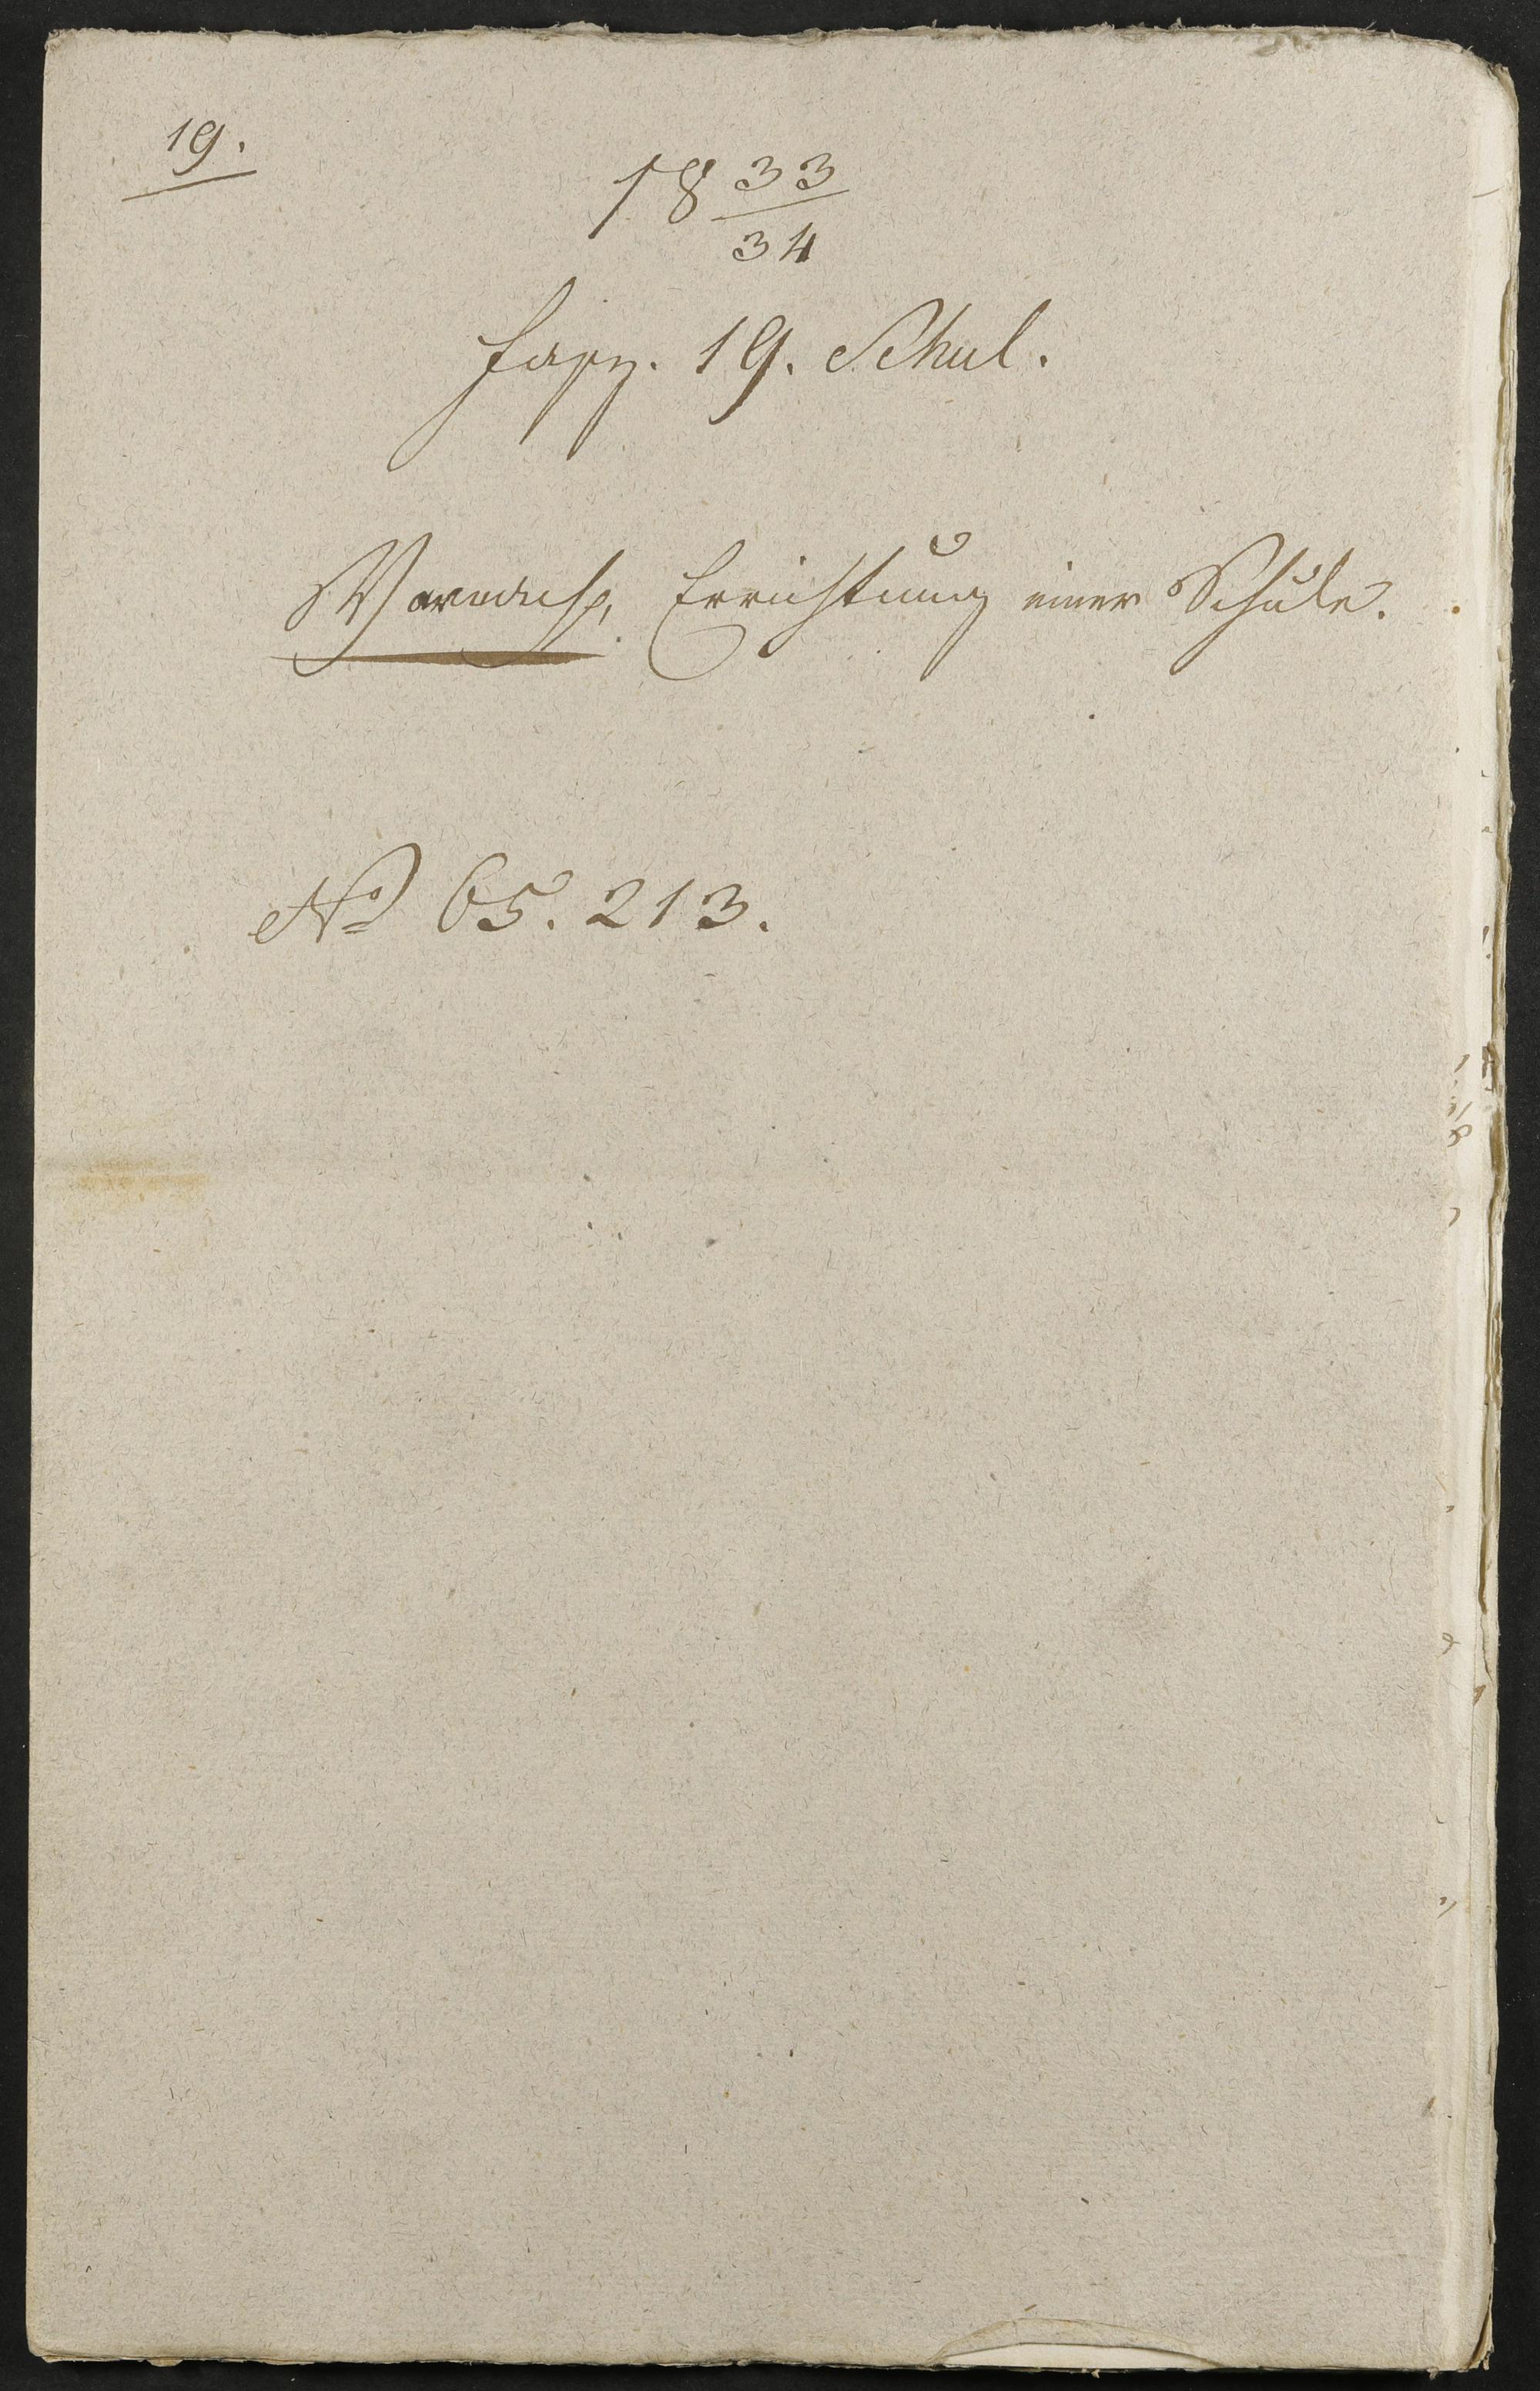 19.
18 33/34
Fasz. 19. Schul.
Errichtung einer Schule.
No 65. 213.